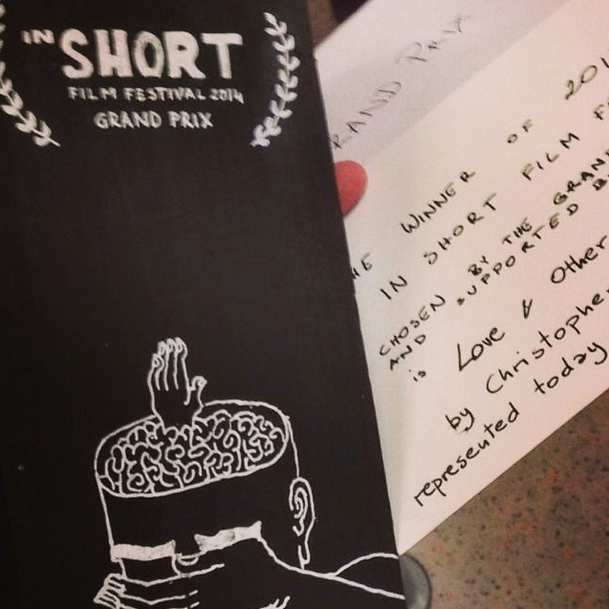 IN SHORT
FILM FESTIVAL 2014
GRAND PRIX
RAND PRIX
HE WINNER OF 201
IN SHORT FILM F
CHOSEN BY THE GRAN
AND SUPPORTED B
is Love & Other
by Christophe
represented today